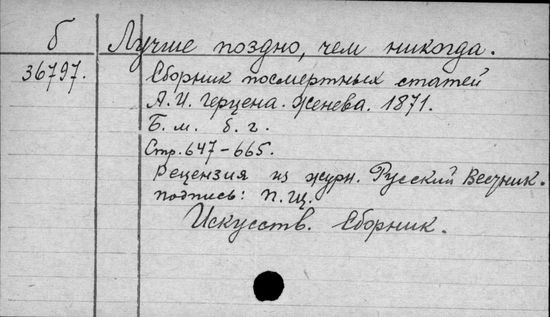 б Лучше поздно, чем никогда.
36797. Сборник посмертных статей
А.И. Герцена. Женева. 1871.
Б.м. б.г.
Стр. 647-665.
Рецензия из журн. Русский Вестник.
подпись: П.Щ.
Искусств. Сборник.